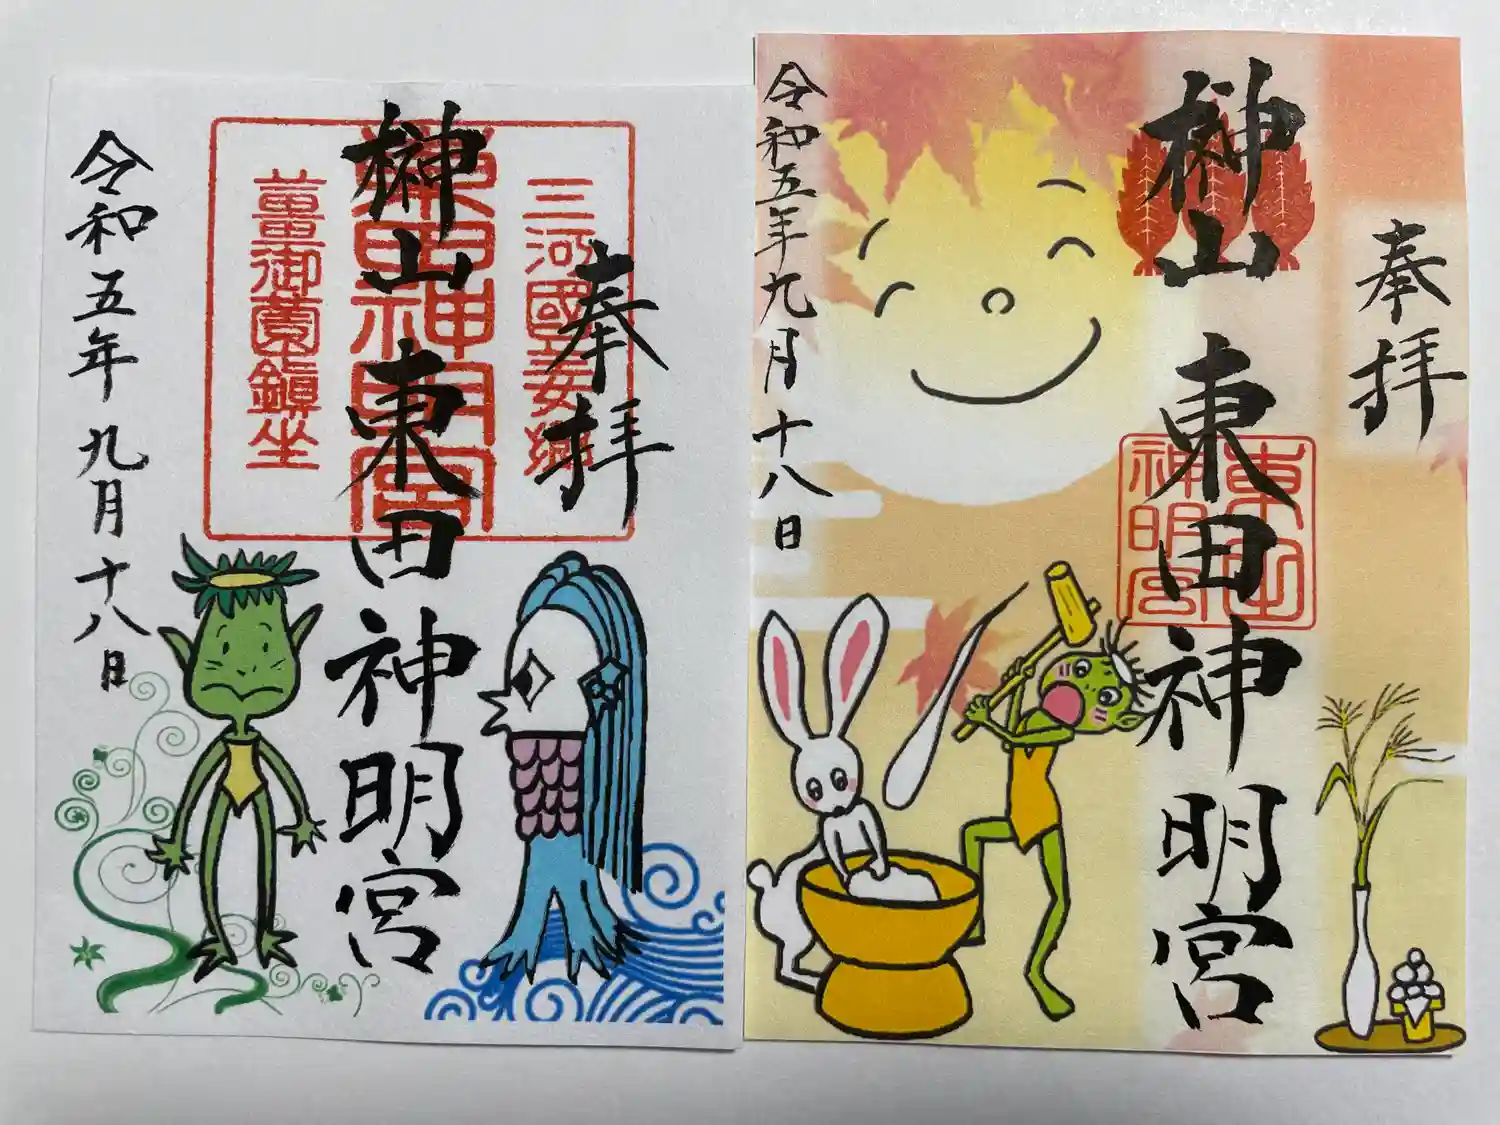 奉拝
三河國
榊山 東田神明宮
東田神明宮
薑御薗鎮坐
令和五年九月十八日
奉拝
榊山 東田神明宮
東田
神明宮
令和五年九月十八日